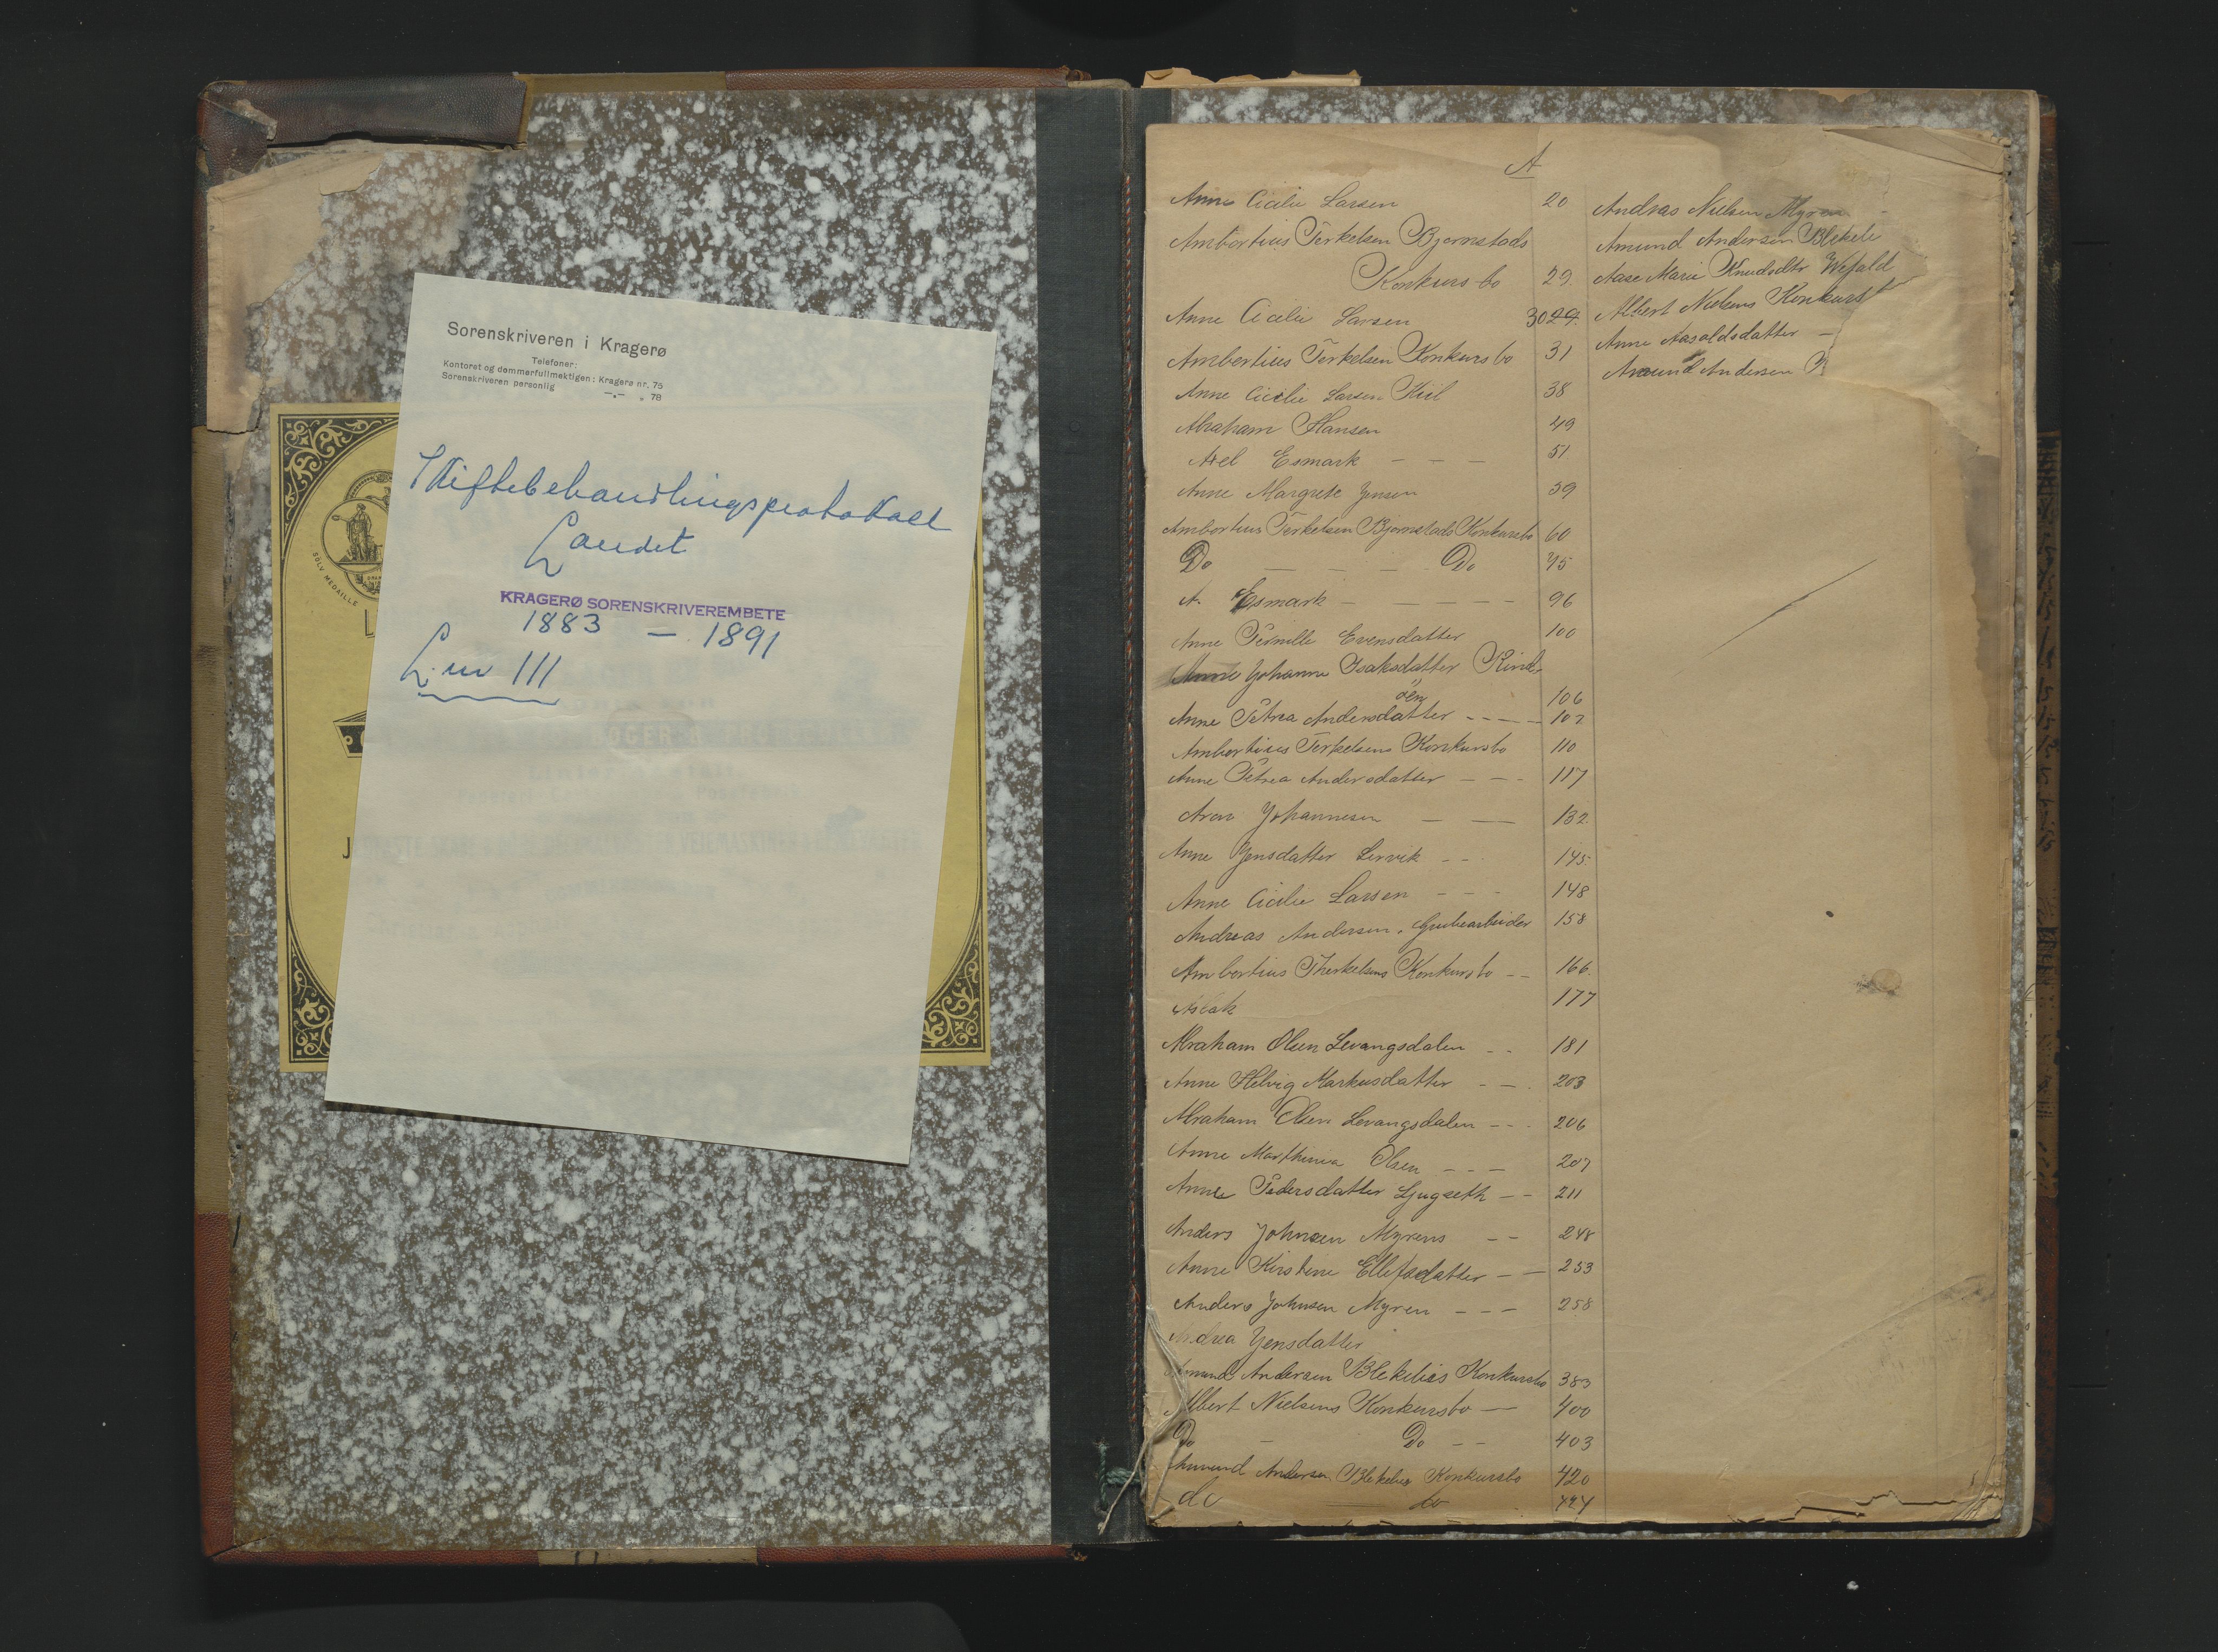 Sorenskriveren i Kragerø
Telefoner:
Kontoret og dommerfullmektigen: Kragerø nr. 75
Sorenskriveren personlig —„— „ 78
Skiftebehandlingsprotokoll
Landet
KRAGERØ SORENSKRIVEREMBETE
1883 — 1891
L. nr III
SÖLV MEDAILLE
A
Anne Cicilie Larsen 20
Ambortius Terkelsen Bjornstads
Konkursbo 29.
Anne Cicilie Larsen 30 29.
Ambortius Terkelsen Konkursbo 31
Anne Cicilie Larsen Kiil 38
Abraham Hansen 49
Axel Esmark — — — 51
Anne Margrete Jensen 59
Ambortius Terkelsen Bjornstads Konkursbo 60
Do — — — Do 75
A. Esmark — — — — — 96
Anne Pernille Evensdatter 100
Anne Johanne Isaksdatter Rind-
öen 106
Anne Petrea Andersdatter - - - - 107
Ambortius Terkelsens Konkursbo 110
Anne Petrea Andersdatter — — - 117
Aron Johannesen — — 132.
Anne Jensdatter Lervik - - 145
Anne Cicilie Larsen - - - 148
Andreas Andersen. Grubearbeider 158
Ambortius Therkelsens Konkursbo - - 166.
Aslak 177
Abraham Olsen Levangsdalen - - 181
Anne Helvig Markusdatter - — 203
Abraham Olsen Levangsdalen - - - 206
Anne Marthinea Olsen - - — 207
Anne Pedersdatter Ljugseth — - 211
Anders Johnsen Myrens — - 248
Anne Kirstine Ellefsdatter - — 253
Anders Johnsen Myren - - — 258
Andrea Jensdatter
Amund Andersen Blekelies Konkursbo 383
Albert Nielsens Konkursbo — 400
Do — Do - - 403
Amund Andersen Blekelies Konkursbo 420
do — do 424
Andreas Nielsen Myren
Amund Andersen Blekeli
Aase Marie Knudsdtr Wefald
Albert Nielsens Konkurs
Anne Aasoldsdatter —
Amund Andersen